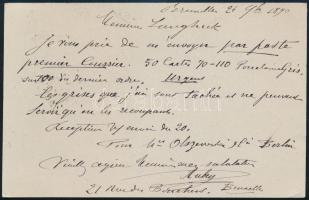 Bruxelles 26 9bre 1890
Monsieur
Je vous prie de m'envoyer par poste
premier Courrier. 50 Cartes 70-110 Porcelaine Gris.
sur 100 du dernier ordre. Urgent
Les grises que j'ai sont tachées et ne peuvent
servir qu'en les recoupant.
Reception Vs envoi du 20.
Pour Mr Berlin
Veuillez agréer Monsieur mes salutations
21 Rue des Bruxelles